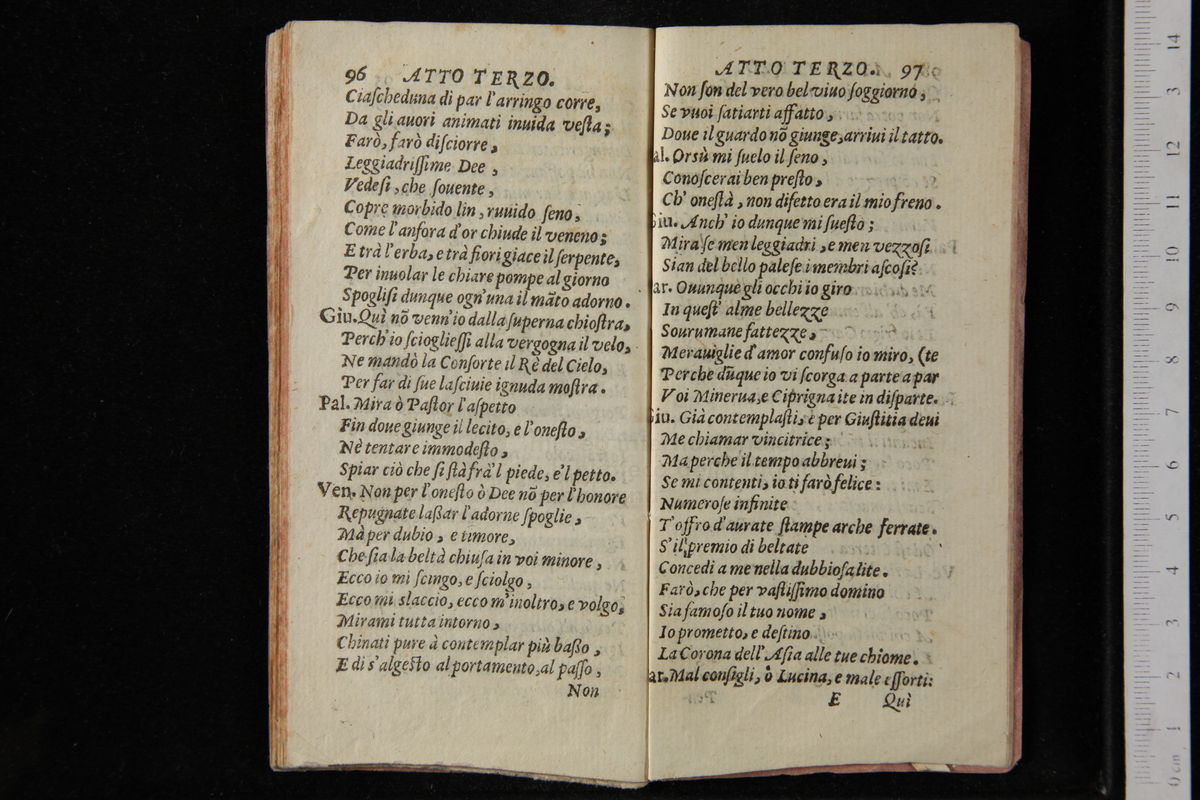 96 ATTO TERZO.
Ciaſcheduna di par l'arringo corre,
Da gli auori animati inuida veſta;
Farò, farò diſciorre,
Leggiadriſſime Dee,
Vedeſi, che ſouente,
Copre morbido lin, ruuido ſeno,
Come l'anfora d'or chiude il veneno;
E trà l'erba, e trà fiori giace il ſerpente,
Per inuolar le chiare pompe al giorno
Spogliſi dunque ogn'una il mãto adorno.
Giu. Quì nõ venn'io dalla ſuperna chioſtra,
Perch'io ſciogliеſſi alla vergogna il velo,
Ne mandò la Conſorte il Rè del Cielo,
Per far di ſue laſciuie ignuda moſtra.
Pal. Mira ò Paſtor l'aſpetto
Fin doue giunge il lecito, e l'oneſto,
Nè tentare immodeſto,
Spiar ciò che ſi ſtà frà'l piede, e'l petto.
Ven. Non per l'oneſto ò Dee nõ per l'honore
Repugnate laßar l'adorne ſpoglie,
Mà per dubio, e timore,
Che ſia la beltà chiuſa in voi minore,
Ecco io mi ſcingo, e ſciolgo,
Ecco mi slaccio, ecco m'inoltro, e volgo,
Mirami tutta intorno,
Chinati pure à contemplar più baßo,
E di s'algeſto al portamento, al paſſo,
Non
ATTO TERZO. 97
Non ſon del vero bel viuo ſoggiorno,
Se vuoi ſatiarti affatto,
Doue il guardo nõ giunge, arriui il tatto.
al. Orsù mi ſuelo il ſeno,
Conoſcerai ben preſto,
Ch' oneſtà, non difetto era il mio freno.
Giu. Anch' io dunque mi ſueſto;
Mira ſe men leggiadri, e men vezzoſi
Sian del bello paleſe i membri aſcoſi?
ar. Ouunque gli occhi io giro
In queſt' alme bellezze
Sourumane fattezze,
Merauiglie d'amor confuſo io miro, (te
Perche dũque io vi ſcorga a parte a par
Voi Minerua, e Ciprigna ite in diſparte.
Giu. Già contemplaſti, e per Giuſtitia deui
Me chiamar vincitrice;
Ma perche il tempo abbreui;
Se mi contenti, io ti farò felice:
Numeroſe infinite
T'offro d'aurate ſtampe arche ferrate.
S'il premio di beltate
Concedi a me nella dubbioſa lite.
Farò, che per vaſtiſſimo domino
Sia famoſo il tuo nome,
Io prometto, e deſtino
La Corona dell'Aſia alle tue chiome.
ar. Mal conſigli, ò Lucina, e male eſſorti:
E Quì